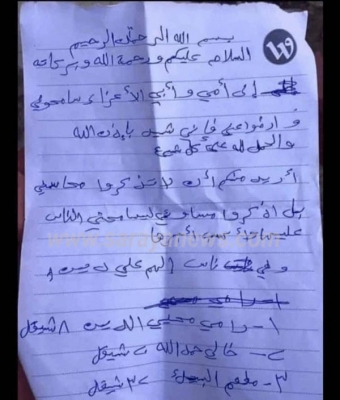 بسم الله الرحمن الرحيم
السلام عليكم ورحمة الله وبركاته
إلى أمي و أبي الأعزاء سامحوني
وارضوا عني فأني شهيد بإذن الله
والحمد لله على كل شيء
أريد منكم أن لا تذكروا محاسني
بل اذكروا مساوئي ليسامحني الناس
وفي ناس إلهم علي دين ٨
١- رامي الدين ٨ شيقل
٢- خالي عبد الله ٢٠ شيقل
٣- مطعم ٢٣ شيقل